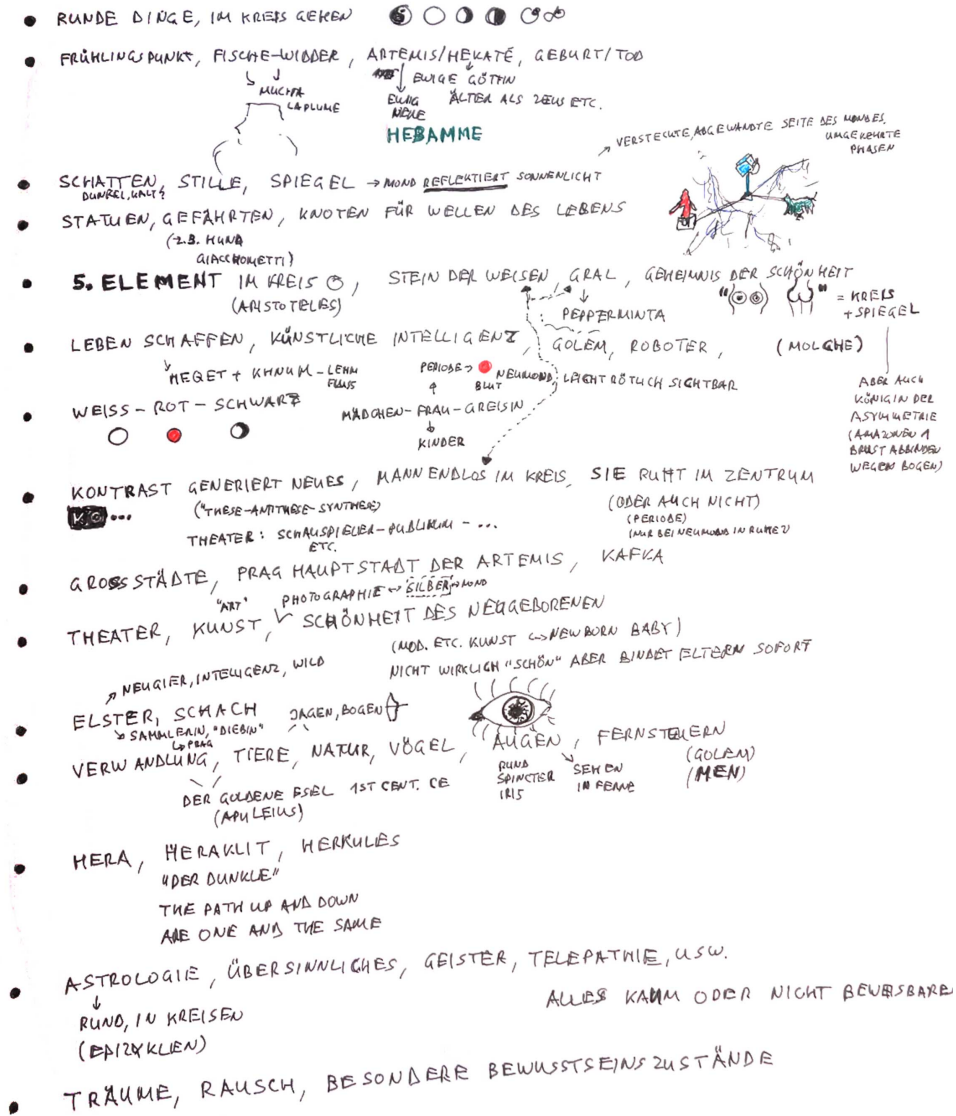 RUNDE DINGE, IM KREIS GEHEN
FRÜHLINGSPUNKT, FISCHE-WIDDER, ARTEMIS/HEKATE, GEBURT/TOD
MUCHA
LA PLUME
EWIGE GÖTTIN
EWIG
NEUE
ÄLTER ALS ZEUS ETC.
HEBAMME
VERSTECKTE, ABGEWANDTE SEITE DES MONDES.
UMGEKEHRTE
PHASEN
SCHATTEN, STILLE, SPIEGEL → MOND REFLEKTIERT SONNENLICHT
DUNKEL, KALT
STATUEN, GEFÄHRTEN, KNOTEN FÜR WELLEN DES LEBENS
(Z.B. HUND
GIACCHOMETTI)
5. ELEMENT IM KREIS, STEIN DER WEISEN, GRAL, GEHEIMNIS DER SCHÖNHEIT
(ARISTOTELES)
= KREIS
+ SPIEGEL
PEPPERMINTA
LEBEN SCHAFFEN, KÜNSTLICHE INTELLIGENZ, GOLEM, ROBOTER, (MOLCHE)
HEQET + KHNUM - LEHM
FLUSS
PERIODE → NEUMOND: LEICHT RÖTLICH SICHTBAR
BLUT
ABER AUCH
KÖNIGIN DER
ASYMMETRIE
(AMAZONEN 1
BRUST ABBINDEN
WEGEN BOGEN)
WEISS - ROT - SCHWARZ
MÄDCHEN - FRAU - GREISIN
KINDER
KONTRAST GENERIERT NEUES, MANN ENDLOS IM KREIS, SIE RUHT IM ZENTRUM
("THESE-ANTITHESE-SYNTHESE)
(ODER AUCH NICHT)
(PERIODE)
(NUR BEI NEUMOND IN RUHE?)
THEATER: SCHAUSPIELER - PUBLIKUM - ...
ETC.
GROSSSTÄDTE, PRAG HAUPTSTADT DER ARTEMIS, KAFKA
"ART" PHOTOGRAPHIE ↔ SILBER ↔ MOND
THEATER, KUNST, SCHÖNHEIT DES NEUGEBORENEN
(MOD. ETC. KUNST ↔ NEWBORN BABY)
NICHT WIRKLICH "SCHÖN" ABER BINDET ELTERN SOFORT
NEUGIER, INTELLIGENZ, WILD
ELSTER, SCHACH JAGEN, BOGEN
SAMMLERIN, "DIEBIN"
PRAG
VERWANDLUNG, TIERE, NATUR, VÖGEL, AUGEN, FERNSTEUERN
(GOLEM)
(MEN)
RUND
SPINCTER
IRIS
SEHEN
IN FERNE
DER GOLDENE ESEL 1ST CENT. CE
(APULEIUS)
HERA, HERAKLIT, HERKULES
"DER DUNKLE"
THE PATH UP AND DOWN
ARE ONE AND THE SAME
ASTROLOGIE, ÜBERSINNLICHES, GEISTER, TELEPATHIE, USW.
ALLES KAUM ODER NICHT BEWEISBARE
RUND, IN KREISEN
(EPIZYKLEN)
TRÄUME, RAUSCH, BESONDERE BEWUSSTSEINSZUSTÄNDE